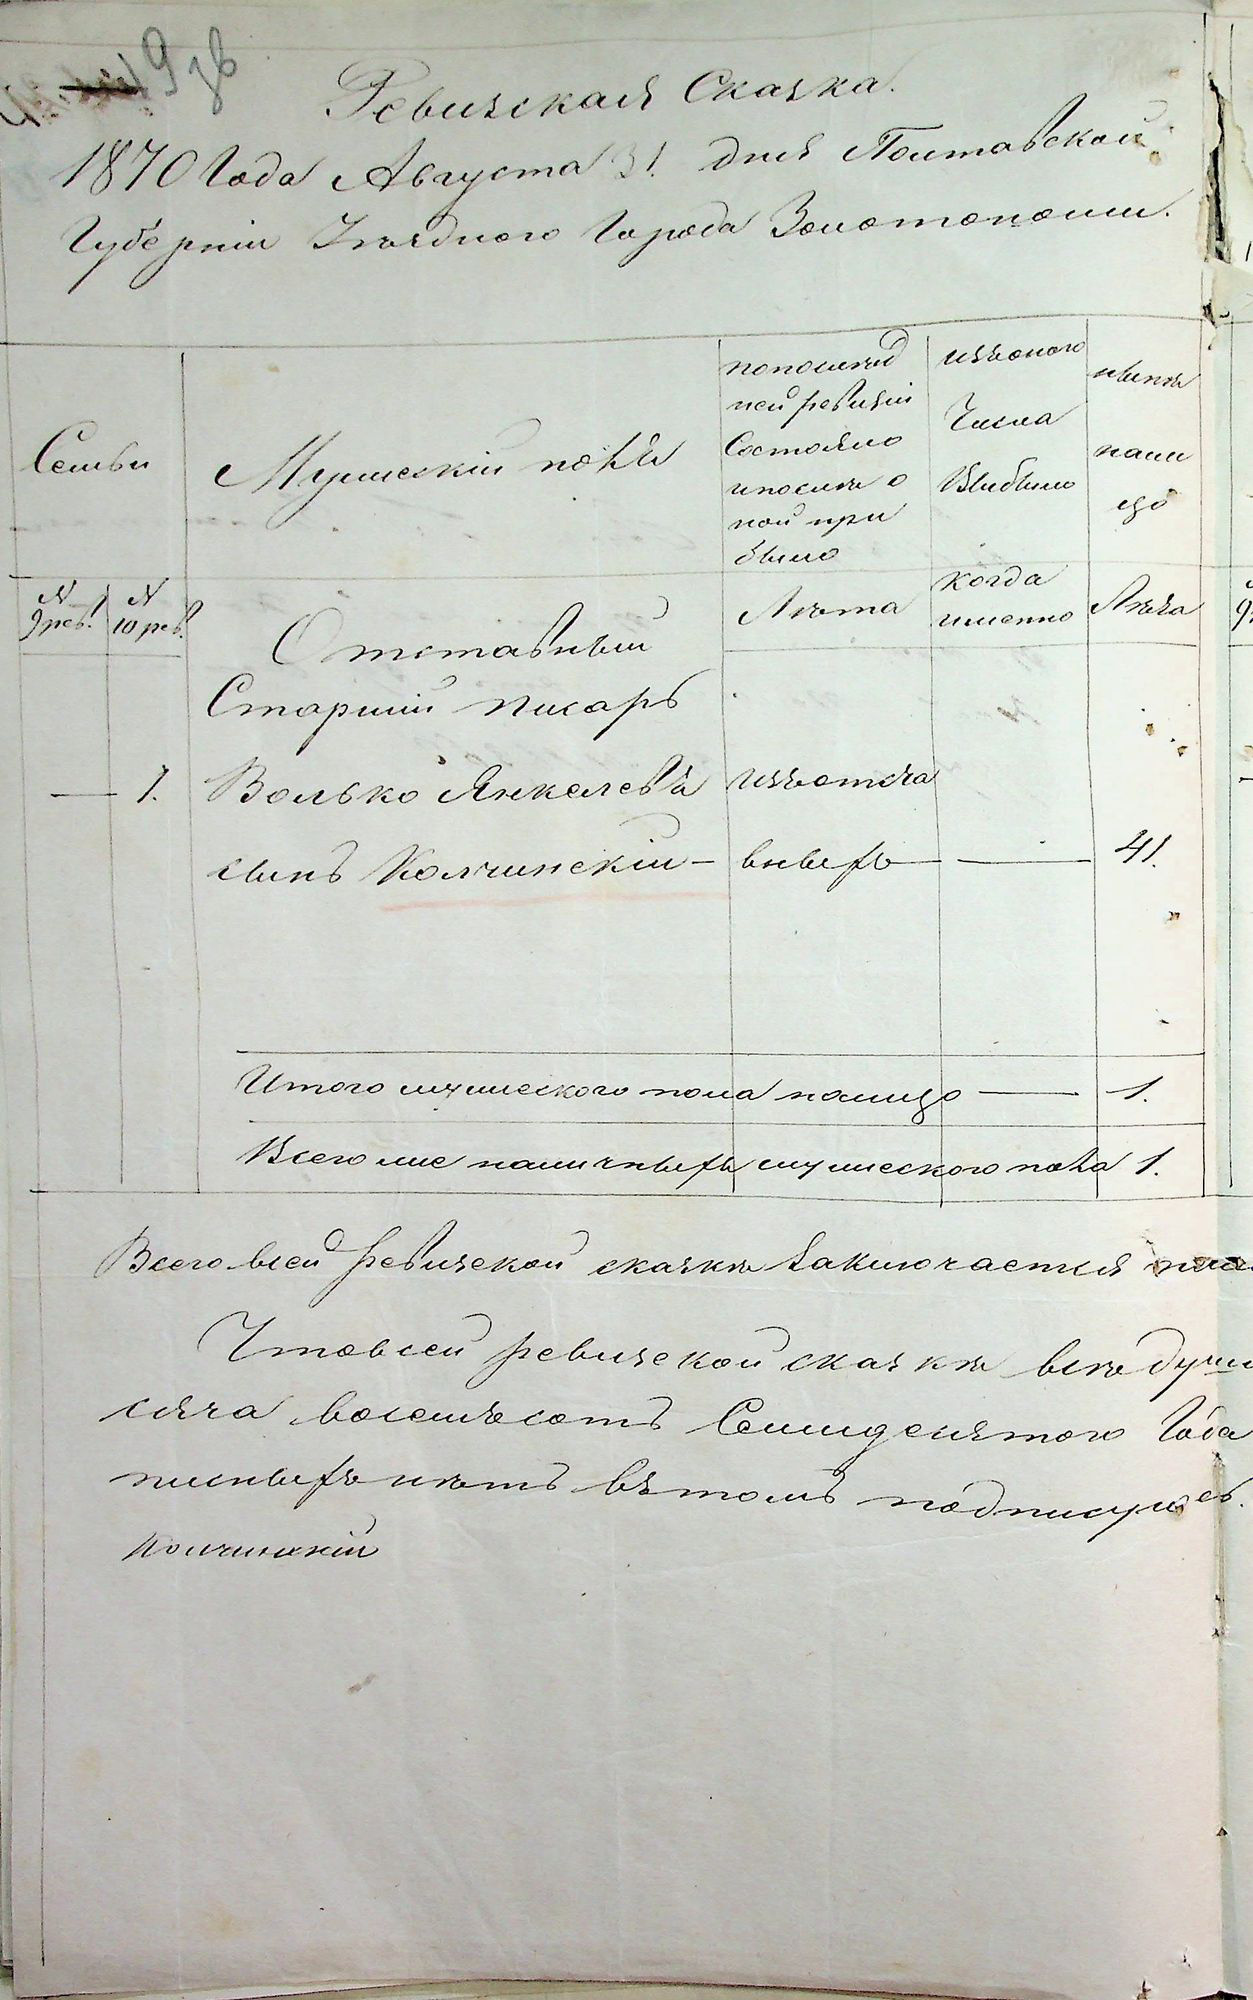 Ревизская Сказка.
1870 Года Августа 31. дня Полтавской
Губерніи Уѣзднаго Города Золотоноши.
Семьи
Мужескій полъ
по послѣд
ней ревизіи
Состояло
и послѣ о
ной при
было
изъ оного
Числа
Выбыло
нынѣ
нали
цо
№ 9 рев.
№ 10 рев.
Лѣта
когда
именно
Лѣта
Отставный
Старшій писарь
— 1. Волько Янкелевъ изъ отста
сынъ Колчинскій — вныхъ — — 41.
Итого мужеского пола налицо — 1.
Всего же наличныхъ мужеского пола 1.
Всего в сей ревизской сказкѣ Заключается
Что в сей ревизской сказкѣ всѣ души
сяча восемьсотъ Семидесятого Года
писныхъ нѣтъ въ томъ подписуюсь.
Колчинскій